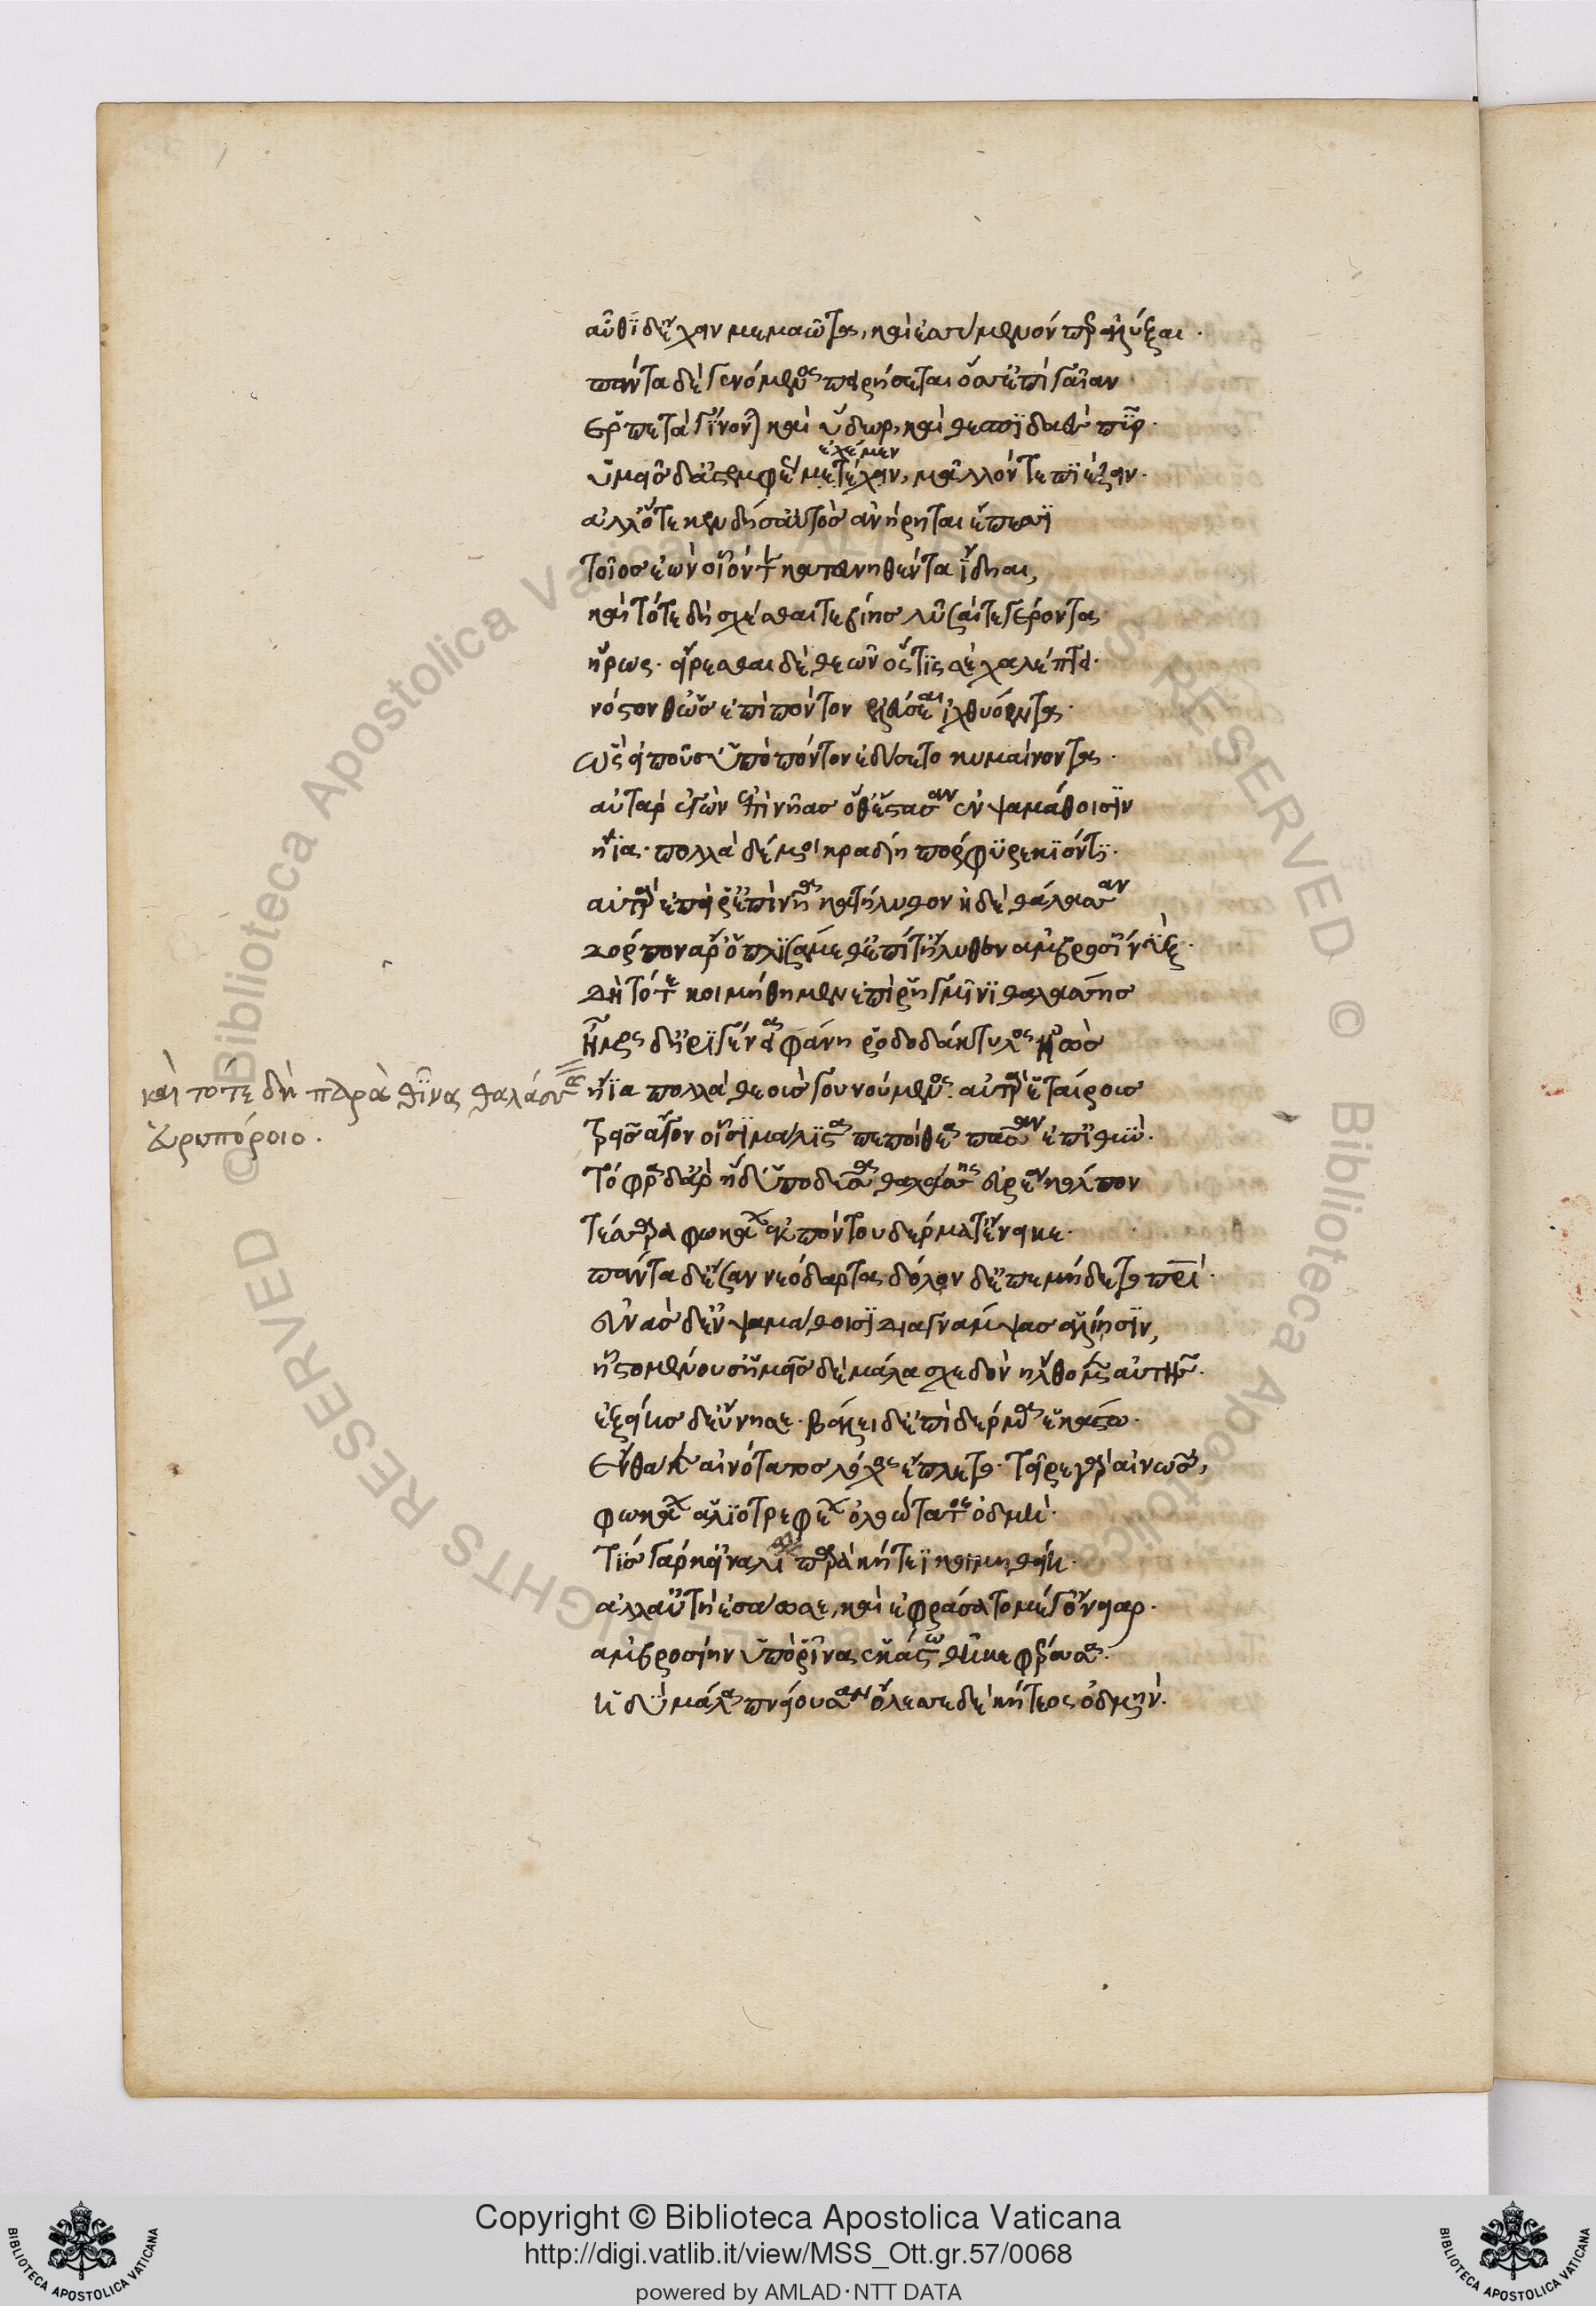 αὖθι δ' ἔχειν μεμαῶτα, καὶ ἐσσύμενόν περ ἀλύξαι.
πάντα δὲ γενόμενος πειρήσεται ὅσσ' ἐπὶ γαῖαν
ἑρπετὰ γίνονται καὶ ὕδωρ, καὶ θεσπιδαὲς πῦρ.
ἐχέμεν
ὑμεῖς δ' ἀστεμφέως μετέχειν, μᾶλλόν τε πιέζειν.
ἀλλ' ὅτε κεν δή σ' αὐτὸς ἀνείρηται ἔπεσσι
τοῖος ἐὼν οἷόν τε κατευνηθέντα ἴδησαι,
καὶ τότε δὴ σχέσθαι τε βίης λῦσαί τε γέροντα
ἥρως. εἴρεσθαι δὲ θεῶν ὅστις σε χαλέπτει.
νόστον θ' ὡς ἐπὶ πόντον ἐλεύσεαι ἰχθυόεντα.
ὣς εἰποῦσ' ὑπὸ πόντον ἐδύσετο κυμαίνοντα.
αὐτὰρ ἐγὼν ἐπὶ νῆας ὅθ' ἕστασαν ἐν ψαμάθοισιν
ἤϊα. πολλὰ δέ μοι κραδίη πόρφυρε κιόντι.
αὐτὰρ ἐπεί ῥ' ἐπὶ νῆα κατήλυθον ἠδὲ θάλασσαν
δόρπον ἄρ' ὁπλισάμεσθ' ἐπί τ' ἤλυθεν ἀμβροσίη νύξ.
δὴ τότε κοιμήθημεν ἐπὶ ῥηγμῖνι θαλάσσης
ἦμος δ' ἠριγένεια φάνη ῥοδοδάκτυλος ἠώς
καὶ τότε δὴ παρὰ θῖνα θαλάσσης
εὐρυπόροιο.
ἤϊα πολλὰ θεοὺς γουνούμενος. αὐτὰρ ἑταίρους
τρεῖς ἄγον οἷσι μάλιστα πεποίθεα πᾶσαν ἐπ' ἰθύν.
τόφρα δ' ἄρ' ἥδ' ὑποδῦσα θαλάσσης εὐρέα κόλπον
τέσσαρα φωκάων ἐκ πόντου δέρματ' ἔνεικε.
πάντα δ' ἔσαν νεόδαρτα δόλον δ' ἐπεμήδετο πατρί.
εὐνὰς δ' ἐν ψαμάθοισι διαγνάμψασ' ἁλίῃσιν,
ἧστο μένουσ' ἡμεῖς δὲ μάλα σχεδὸν ἤλθομεν αὐτῆς.
ἑξείης δ' εὔνησε. βάλεν δ' ἐπὶ δέρμα ἑκάστῳ.
ἔνθα κεν αἰνότατος λόχος ἔπλετο. τεῖρε γὰρ αἰνῶς,
φωκάων ἁλιοτρεφέων ὀλοώτατος ὀδμή.
τίς γάρ κ' εἰναλίῳ παρὰ κήτεϊ κοιμηθείη.
ἀλλ' αὐτὴ ἐσάωσε, καὶ ἐφράσατο μέγ' ὄνειαρ.
ἀμβροσίην ὑπὸ ῥῖνα ἑκάστῳ θῆκε φέρουσα.
ἡδὺ μάλα πνείουσαν ὄλεσσε δὲ κήτεος ὀδμήν.
© Biblioteca Apostolica Vaticana ALL RIGHTS RESERVED
Copyright © Biblioteca Apostolica Vaticana
http://digi.vatlib.it/view/MSS_Ott.gr.57/0068
powered by AMLAD·NTT DATA
BIBLIOTECA APOSTOLICA VATICANA
BIBLIOTECA APOSTOLICA VATICANA